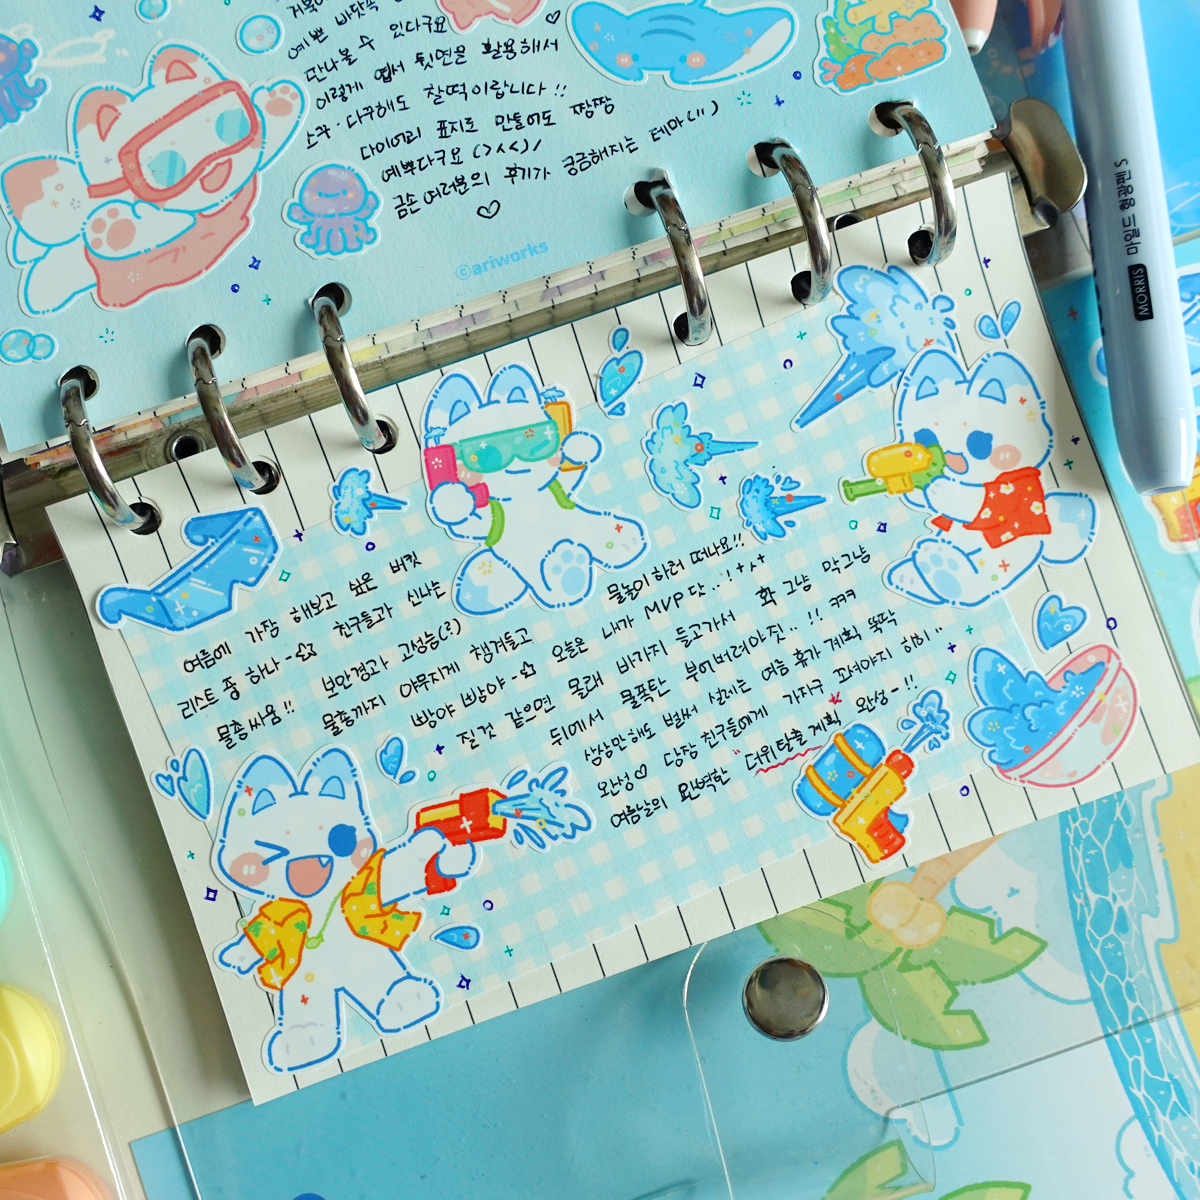 예쁜 바닷속
만나볼 수 있다구요
이렇게 엽서 뒷면을 활용해서
소꾸·다꾸해도 찰떡이랍니다!!
다이어리 표지로 만들어도 짱짱
예쁘다구요 (>ㅅ<)/
금손 여러분의 후기가 궁금해지는 테마
♡
©ariworks
MORRIS 마일드 형광펜 S
여름에 가장 해보고 싶은 버킷
리스트 중 하나-☆ 친구들과 신나는
물총싸움!! 보안경과 고성능(?)
물총까지 야무지게 챙겨들고
빵야 빵야-☆ 오늘은 내가 MVP 단..!
질것 같으면 몰래 바가지 들고가서 확 그냥 막그냥
물놀이 하러 떠나요!!
뒤에서 물폭탄 부어버려야짓..!! ㅋㅋㅋ
상상만해도 벌써 설레는 여름 휴가 계획 뚝딱
완성♡ 당장 친구들에게 가자구 꼬셔야지 히히..
여름날의 완벽한 "더위탈출계획" 완성-!!